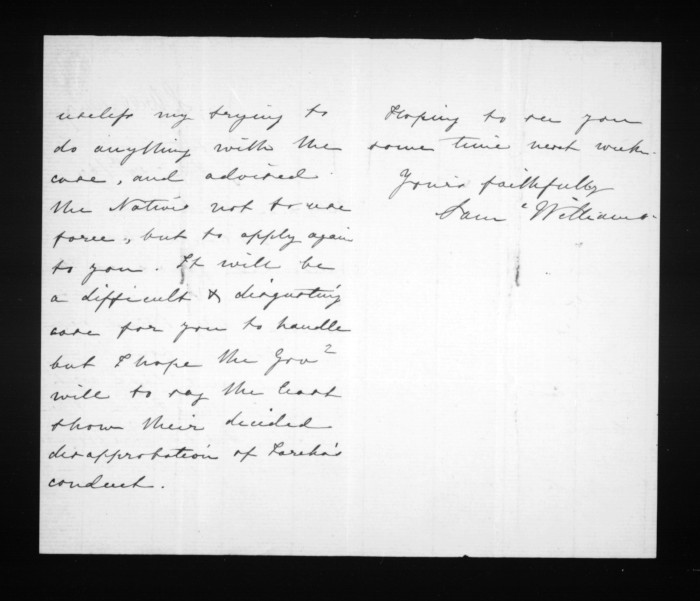 useless my trying to
do anything with the
case, and advised
the Natives not to use
force, but to apply again
to you. It will be
a difficult & disgusting
case for you to handle
but I hope the Gov^t
will to say the least
show their decided
disapprobation of Tareha's
conduct.
Hoping to see you
some time next week.
Yours faithfully
Saml Williams.